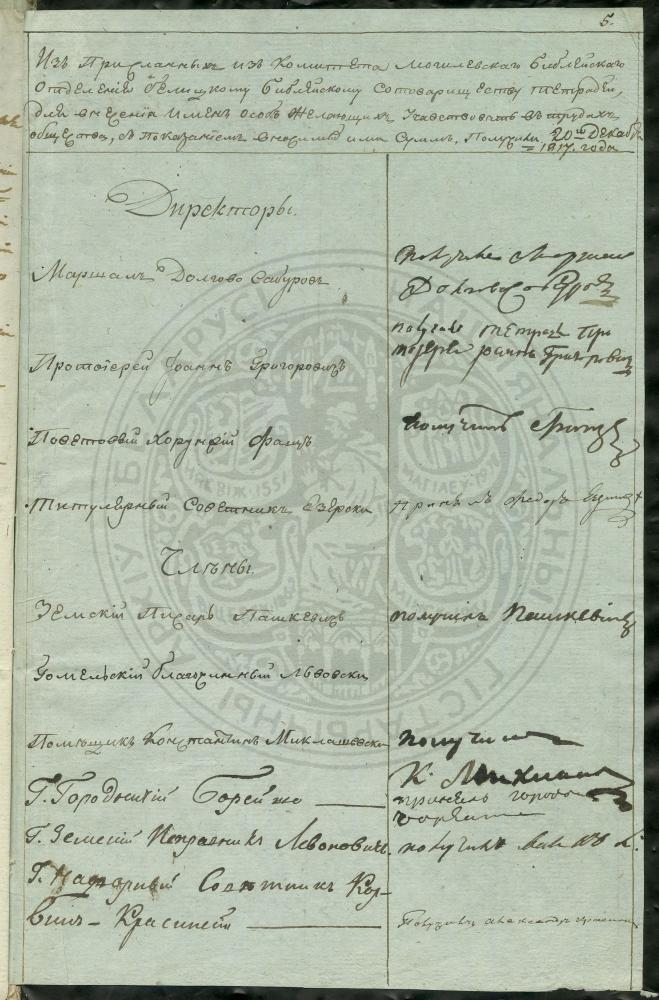 5.
Изъ Присланныхъ изъ Комитета Могилевскаго Библейскаго
Отделенія Белицкому Библейскому Сотовариществу тетрадей,
для внесенія Именъ особъ желающихъ Участвовать въ трудахъ
общества, съ показаніемъ вносимыхъ ими Суммъ, Получили, 20го Декабря
1817. года
Директоры.
Маршалъ Долгово Сабуровъ
получилъ Маршалъ
Долгово Сабуровъ
Протоіерей Іоаннъ Григоровичъ
получилъ тетрадь Про
тоіерей Іоаннъ Григоровичъ
Поветовый Хорунжій Фащъ
получилъ
Титулярный Советникъ Езерски
Принялъ Федоръ
Члены.
Земскій Писарь Пашкевичъ
получилъ Пашкевичъ
Гомельскій благочинный Львовски
Помещикъ Константинъ Миклашевски
получилъ
К.
Г. Городничій Борейшо
Г. Земскій Исправникъ Левоновичъ.
получилъ
Г. Надворный Советникъ Кор-
винъ-Красинскій
Александръ